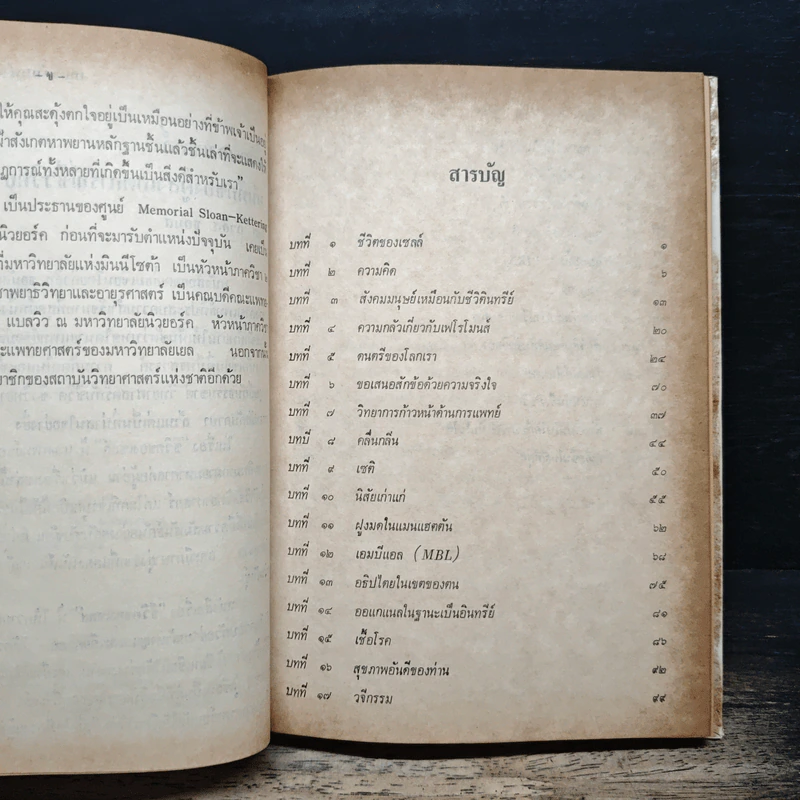 ให้คุณสะดุ้งตกใจอยู่เป็นเหมือนอย่างที่ข้าพเจ้าเป็นอยู่
สังเกตหาพยานหลักฐานชิ้นแล้วชิ้นเล่าที่จะแสดงให้
การณ์ทั้งหลายที่เกิดขึ้นเป็นสิ่งดีสำหรับเรา”
เป็นประธานของศูนย์ Memorial Sloan-Kettering
นิวยอร์ค ก่อนที่จะมารับตำแหน่งปัจจุบัน เคยเป็น
ที่มหาวิทยาลัยแห่งมินนีโซต้า เป็นหัวหน้าภาควิชา
พยาธิวิทยาและอายุรศาสตร์ เป็นคณบดีคณะแพทย-
แบลวิว ณ มหาวิทยาลัยนิวยอร์ค หัวหน้าภาควิชา
แพทยศาสตร์ของมหาวิทยาลัยเยล นอกจากนี้
สมาชิกของสถาบันวิทยาศาสตร์แห่งชาติอีกด้วย
สารบัญ
บทที่ ๑ ชีวิตของเซลล์ ๑
บทที่ ๒ ความคิด ๖
บทที่ ๓ สังคมมนุษย์เหมือนกับชีวิตินทรีย์ ๑๓
บทที่ ๔ ความกลัวเกี่ยวกับเฟโรโมนส์ ๒๐
บทที่ ๕ ดนตรีของโลกเรา ๒๔
บทที่ ๖ ขอเสนอสักข้อด้วยความจริงใจ ๗๐
บทที่ ๗ วิทยาการก้าวหน้าด้านการแพทย์ ๓๗
บทที่ ๘ คลื่นกลิ่น ๔๔
บทที่ ๙ เซติ ๕๐
บทที่ ๑๐ นิสัยเก่าแก่ ๕๕
บทที่ ๑๑ ฝูงมดในแมนแฮตตัน ๖๒
บทที่ ๑๒ เอมบีแอล (MBL) ๖๘
บทที่ ๑๓ อธิปไตยในเขตของตน ๗๕
บทที่ ๑๔ ออแกแนลในฐานะเป็นอินทรีย์ ๘๑
บทที่ ๑๕ เชื้อโรค ๘๖
บทที่ ๑๖ สุขภาพอันดีของท่าน ๙๒
บทที่ ๑๗ วจีกรรม ๙๙